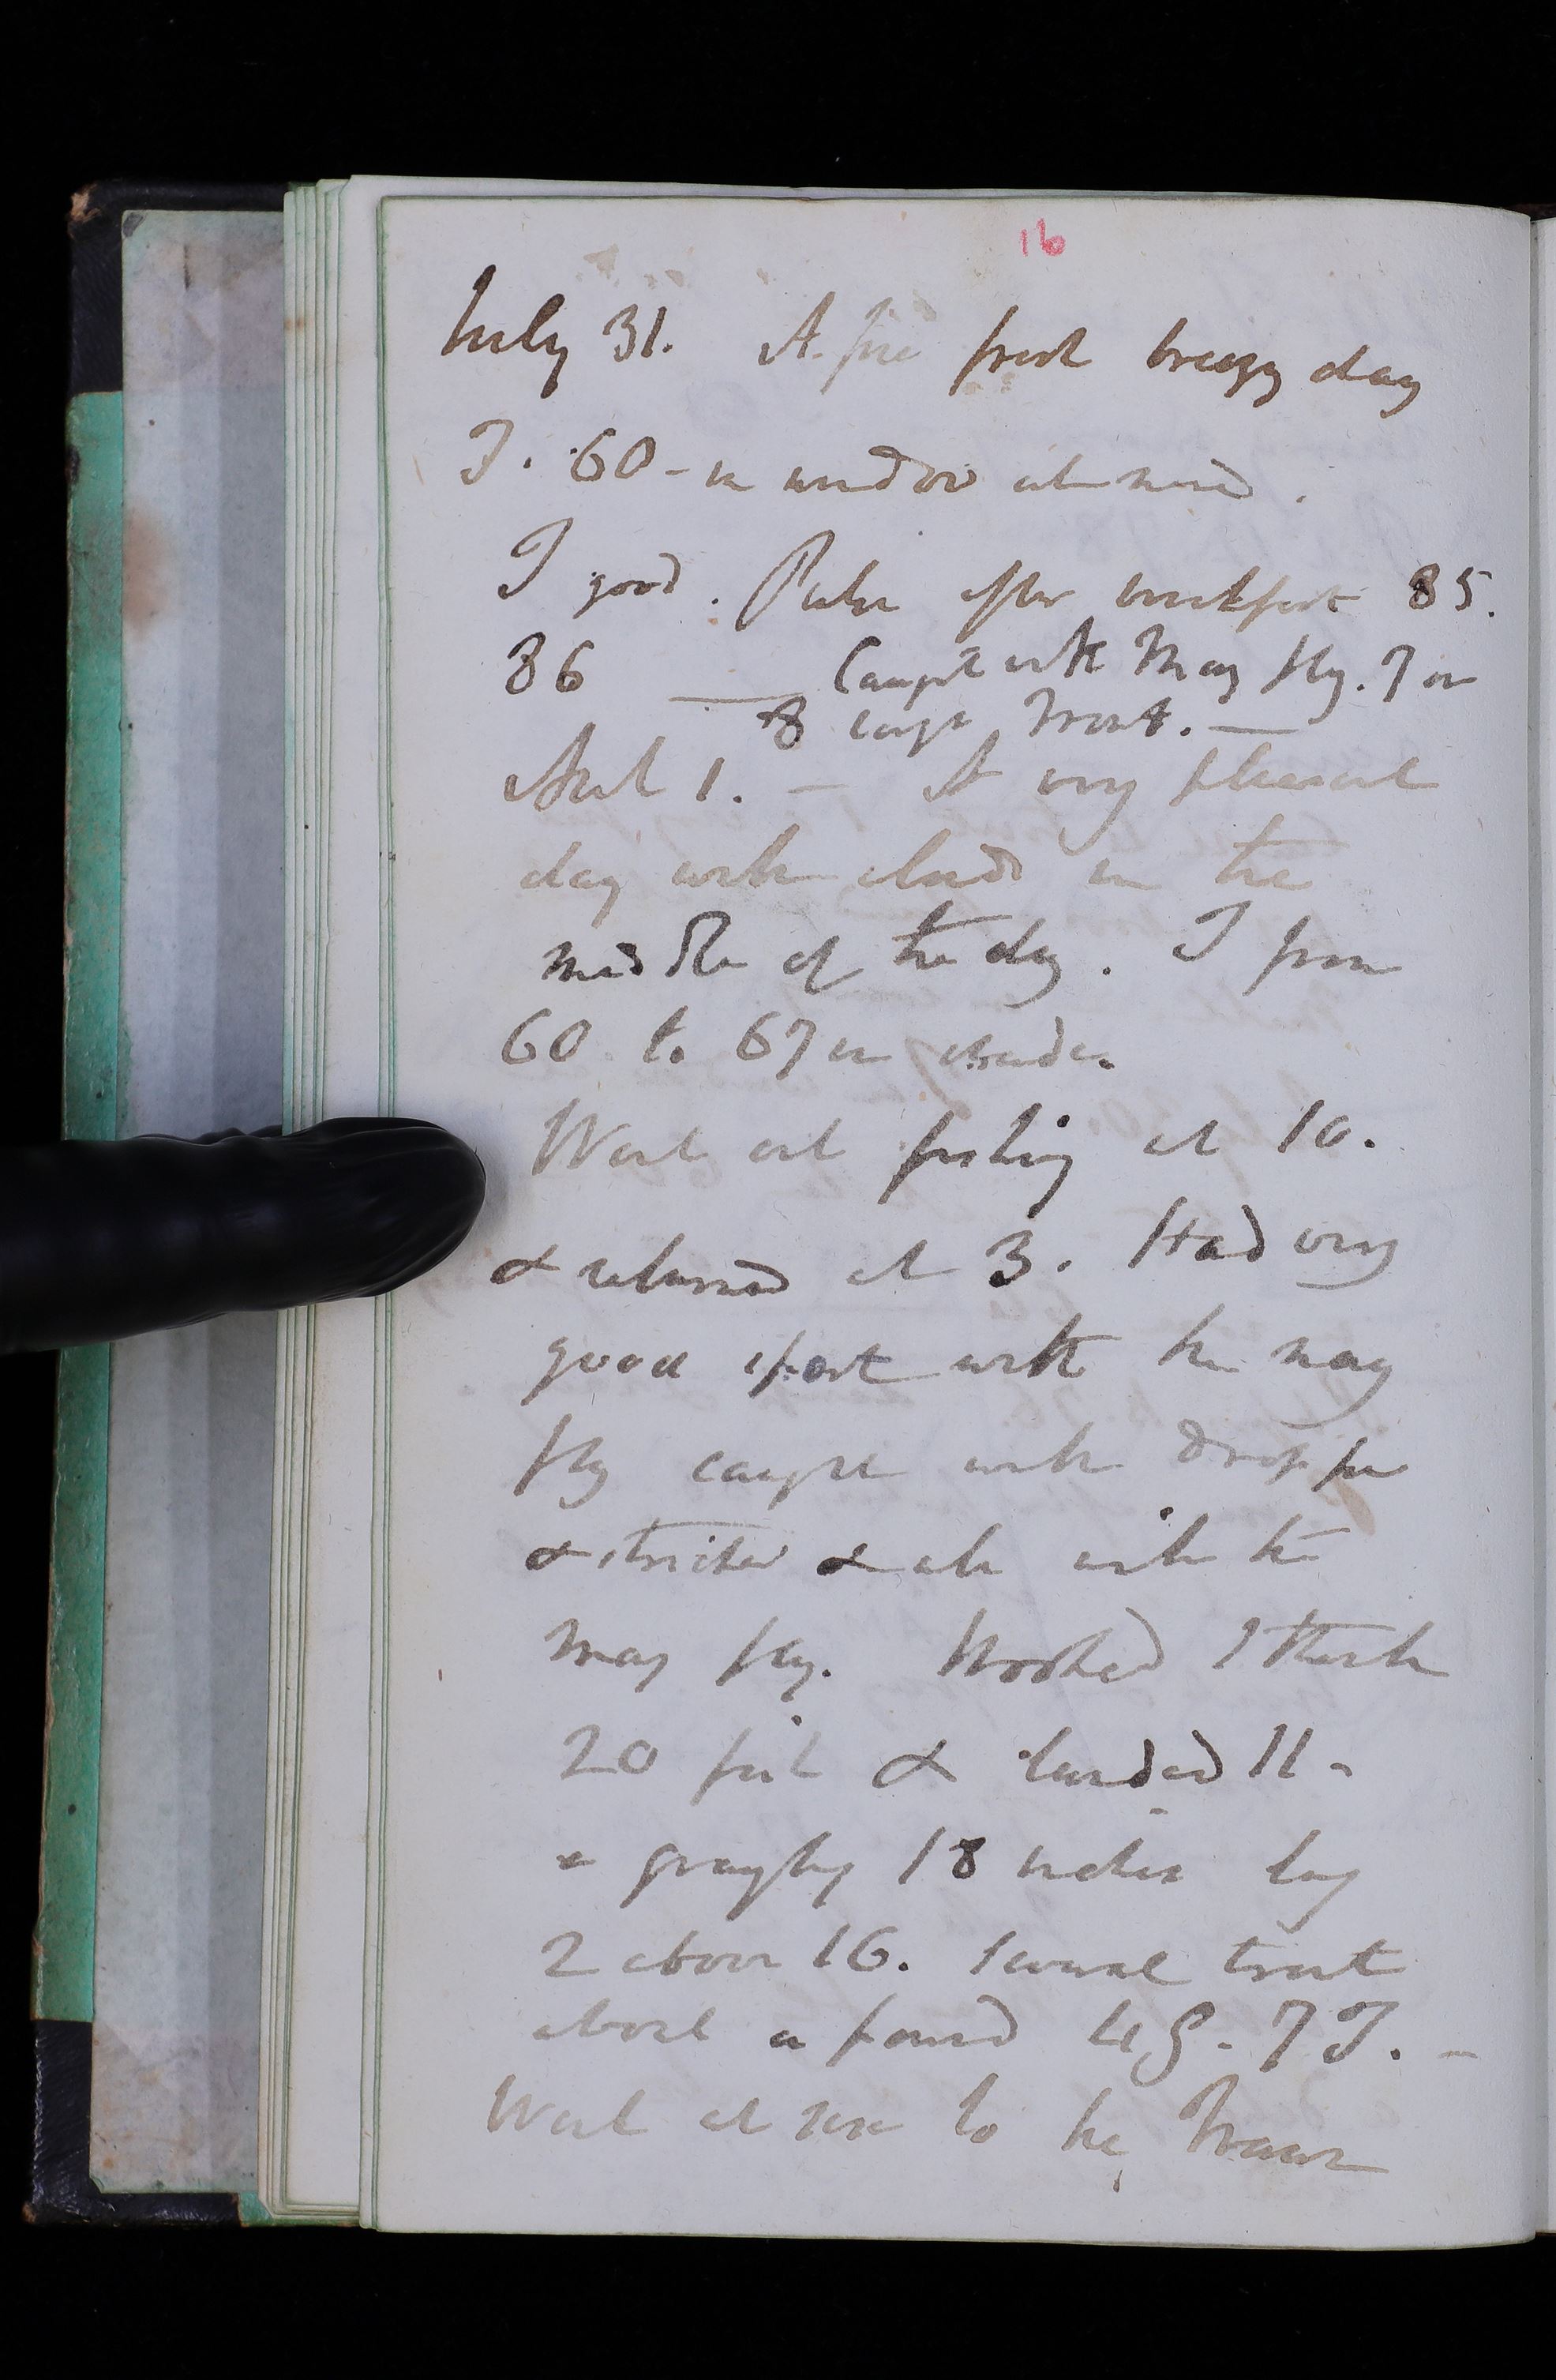 16
July 31. A fine fresh breezy day
T. 60 - in window at noon.
T good. Pulse after breakfast 85.
86 — Caught with May fly. 7 or
8 large Trout. —
Aust 1. — A very pleasant
day with clouds in the
middle of the day. T from
60 to 67 in shade.
Went out fishing at 10.
& returned at 3. Had very
good sport with the may
fly caught with dropper
& stretcher & also with the
may fly. Hooked I think
20 fish & landed 11 -
a grayling 18 inches long
2 above 16. several trout
about a pound 4 G. 7 T. —
Went at to the Traun